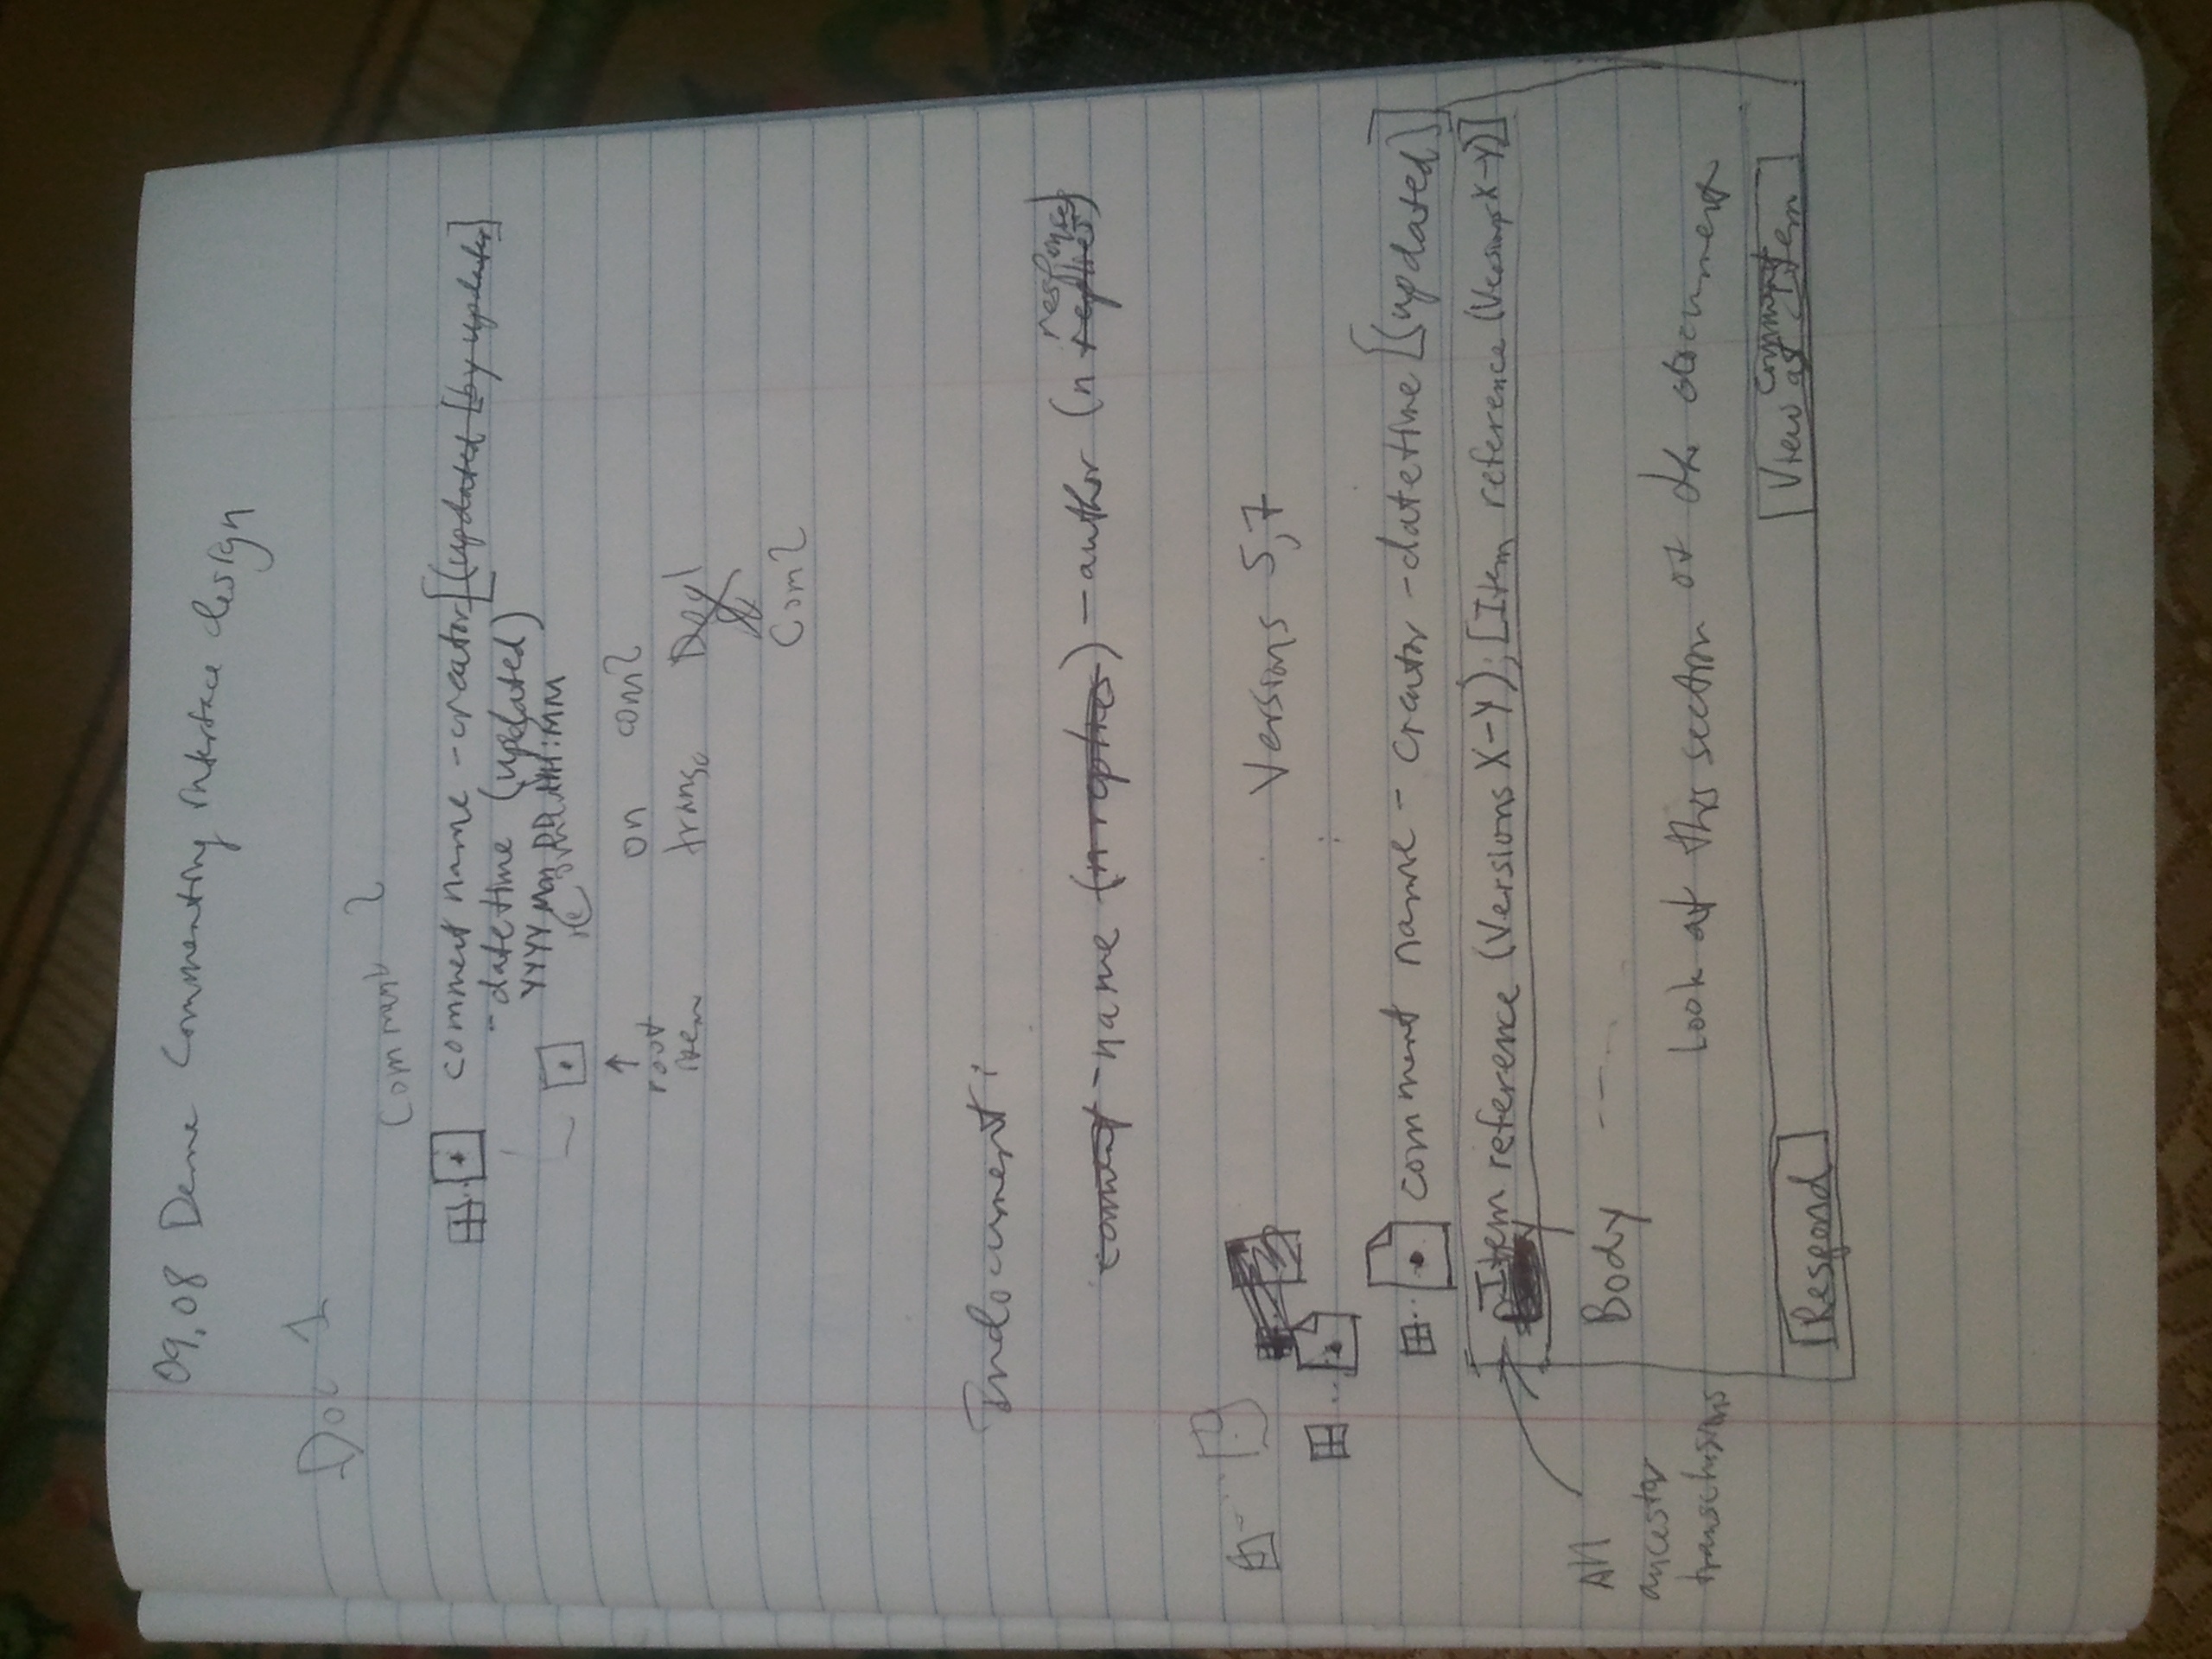 09.08 Deme Commenting interface design
Doc 1
Comment 2
comment name - creator [(updated [by updater]
- datetime (updated)
YYYY Mon DD HH:MM
↑ on com2
root trans. Doc 1
item
Com2
In document:
comment - name (n replies) - author (n replies responses)
Versions 5,7
comment name - creator - datetime [(updated)]
Item reference (Versions X-Y); [Item reference (Versions X-Y)]
Body ---.
Look at this section of the document
Respond View comment as item
All
ancestor
transclusions